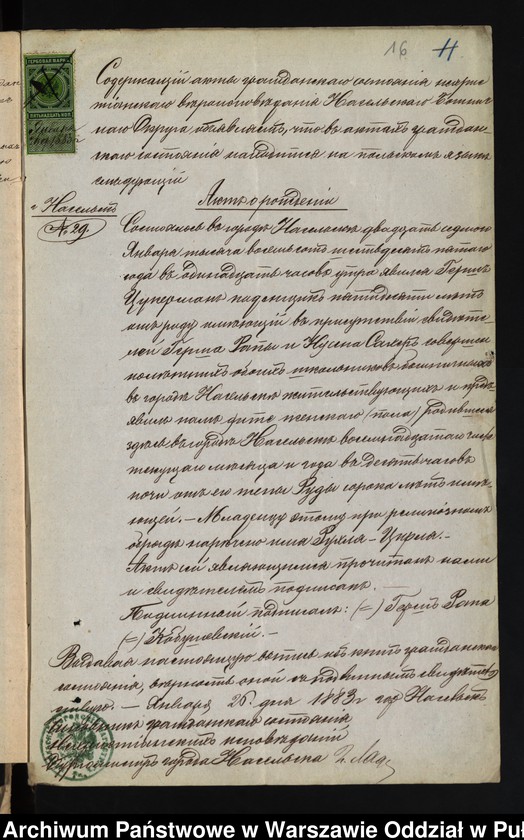 16
ГЕРБОВАЯ МАРКА
ПЯТЬНАДЦАТЬ КОП.
Содержащій акты гражданскаго состоянія нехрис
тіянскаго вѣроисповѣданія Насельскаго
наго Округа объявляетъ, что въ актахъ граждан
скаго состоянія находится на польскомъ языкѣ
слѣдующій
Актъ о рожденіи
г. Насельскъ
№ 29.
Состоялось въ городѣ Насельскѣ двадцать седьмого
Января тысяча восемьсотъ шестьдесятъ пятаго
года въ одинадцать часовъ утра явился Гершъ
Цукерманъ поденщикъ пятидесяти лѣтъ
отъ роду имѣющій въ присутствіи свидѣте
лей Герша Рапы и Нусена соверше
нолѣтнихъ обоихъ школьниковъ
въ городѣ Насельскѣ жительствующихъ и предъ
явилъ намъ дитя женскаго (пола) родившееся
здѣсь въ городѣ Насельскѣ восемнадцатаго числа
текущаго мѣсяца и года въ десять часовъ
ночи отъ его жены Руды сорока лѣтъ имѣю
ющей. — Младенцу этому при религіозномъ
обрядѣ наречено имя Рухля-Цирля. —
Актъ сей являющимся прочитанъ нами
и свидѣтелемъ подписанъ. —
Подлинный подписалъ: (=) Гершъ Рапа
(=) —
Выдавая настоящую выпись изъ книгъ гражданскаго
состоянія, вѣрность оной съ подлинностью свидѣтель
ствую. — Января 26 дня 1883 г. гор. Насельскъ
Чиновникъ гражданскаго состоянія
Нехристіянскихъ исповѣданій
Бургомистръ города Насельска
Archiwum Państwowe w Warszawie Oddział w Pu